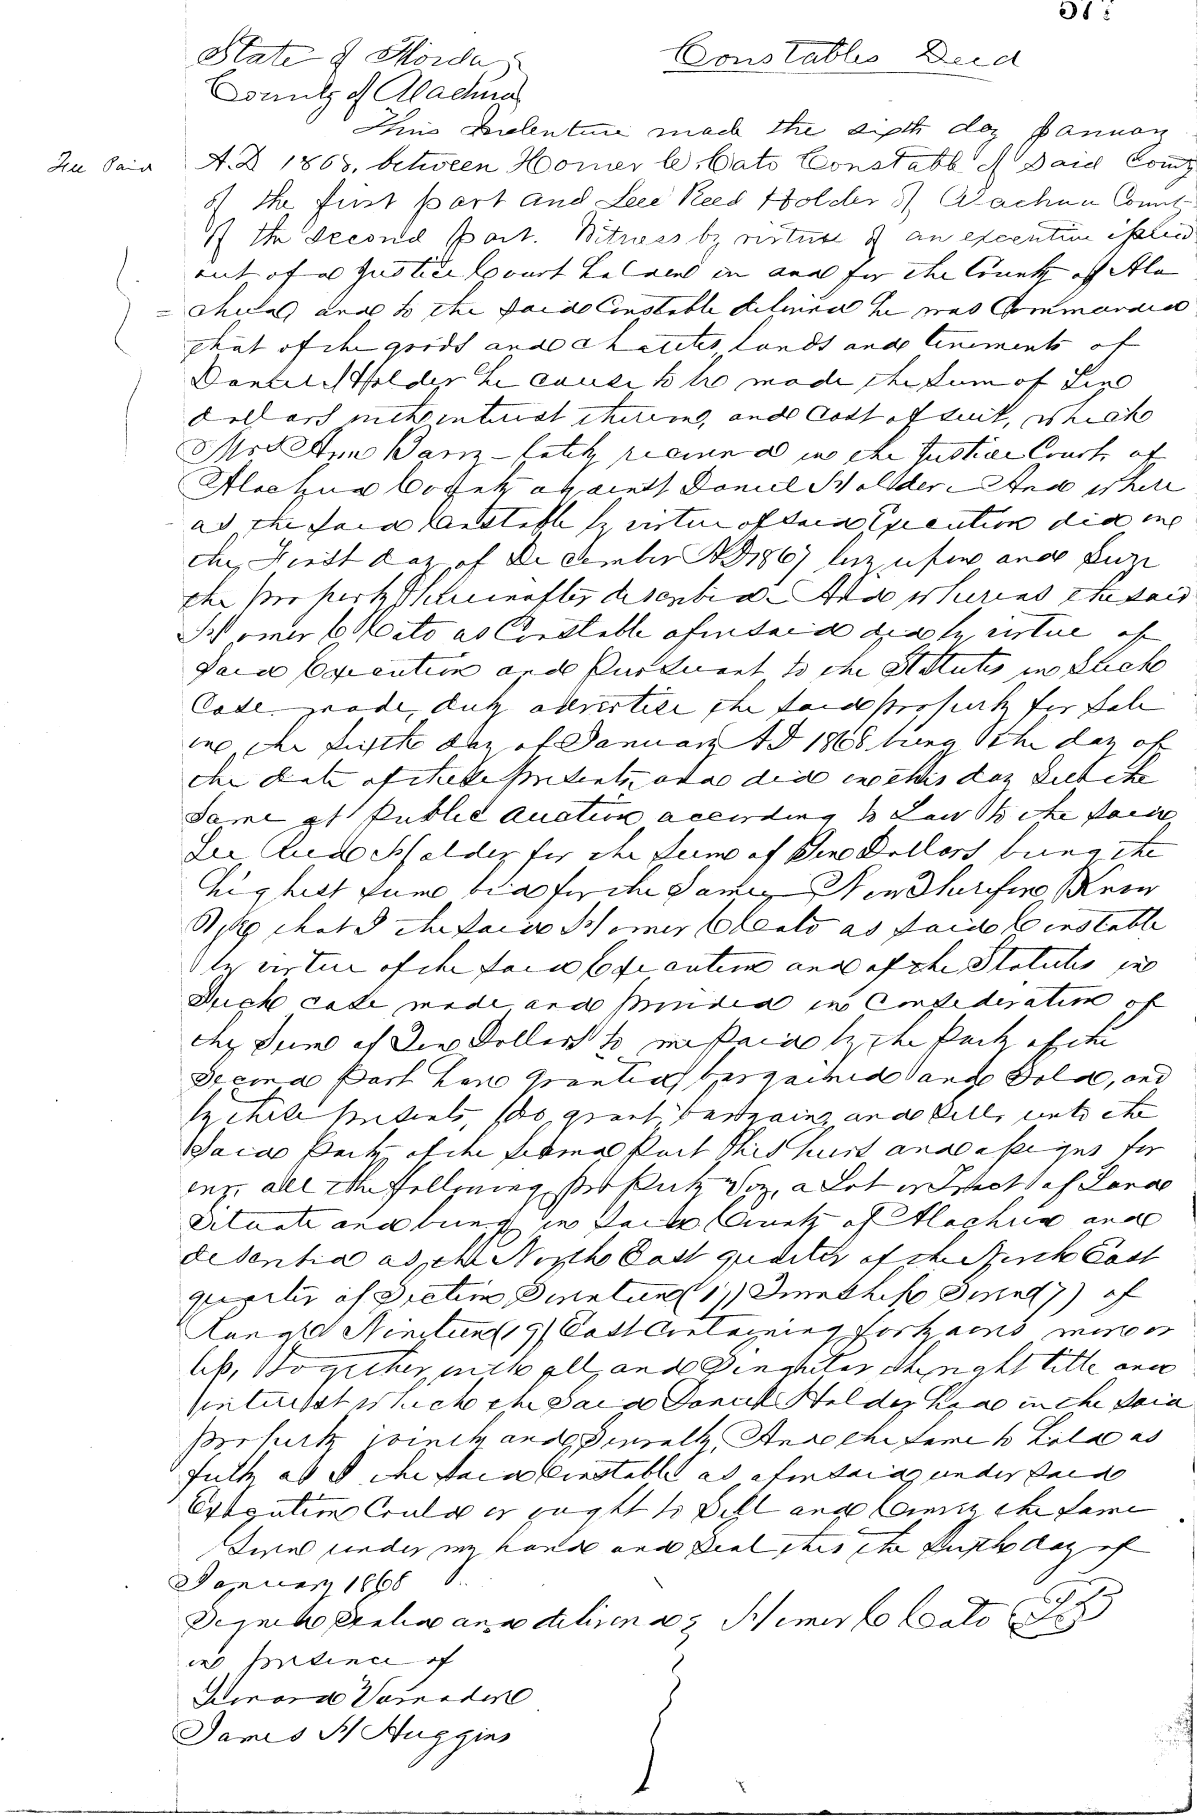 State of Florida Constables Deed
County of Alachua
This Indenture made the sixth day January
Fee Paid A.D 1868, between Homer C. Cato Constable of Said County
of the first part and Lee Reed Holder of Alachua County
of the second part. Witness by virtue of an execution issued
out of a Justice Court holden in and for the County of Ala
= chua and to the said Constable delivered he was Commanded
that of the goods and chattles, lands and tenements of
Daniel Holder he cause to be made the sum of
dollars with interest thereon, and cost of suit, which
Mrs Ann Barry lately recovered in the Justice Court of
Alachua County against Daniel Holder - And where
as the said Constable by virtue of said Execution did on
the First day of December AD 1867 levy upon and Seize
the property hereinafter described - And whereas the said
Homer C Cato as Constable aforesaid did by virtue of
Said Execution and Pursuant to the Statutes in Such
Case made, duly advertise the said property for Sale
on the sixth day of January AD 1868 being the day of
the date of these presents, and did on this day Sell the
Same at Public Auction according to Law to the said
Lee Reed Holder for the sum of Ten Dollars being the
highest sum bid for the Same, Now Therefore, Know
that I the said Homer C Cato as said Constable
by virtue of the said Execution and of the Statutes in
Such case made and provided in Consideration of
the Sum of Ten Dollars to me Paid by the Party of the
Second Part have granted, bargained and Sold, and
by these presents, do, grant, bargain, and Sell, unto the
Said Party of the Second Part his heirs and assigns for
ever, all the following property Viz, a Lot or Tract of Land
Situate and being in said County of Alachua and
described as the North East quarter of the North East
quarter of Section Seventeen (17) Township Seven (7) of
Range Nineteen (19) East Containing forty acres more or
less, Together, with all and Singular the right title and
interest which the Said Daniel Holder had in the said
property jointly and Severally, And the same to hold as
fully as I the said Constable as aforesaid under said
Execution Could or ought to Sell and Convey the Same
Given under my hand and Seal this the Sixth day of
January 1868
Signed Sealed and delivered Homer C Cato
in presence of
James H Huggins